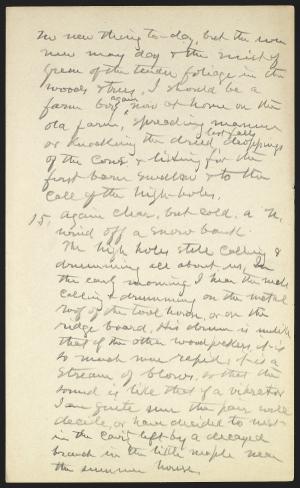 No new thing to-day, but the ever
new may day & the mist of
green of the tender foliage in the
woods & trees. I should be a
farm boy again now at home on the
old farm, spreading manure
or knocking the dried, last falls droppings
of the cows & listening for the
first barn swallow & to the
call of the high-holes.
15, again clear, but cold. a N.
wind off a snow bank.
The high holes still calling &
drumming all about us, In
the early morning I hear the male
calling & drumming on the metal
roof of the tool house, or on the
ridge board. His drum is unlike
that of the other woodpeckers, it is
so much more rapid; it is a
stream of blows, so that the
sound is like that of a vibrator
I am quite sure the pair will
decide, or have decided to nest
in the cavity left by a decayed
branch in the little maple near
the summer house.